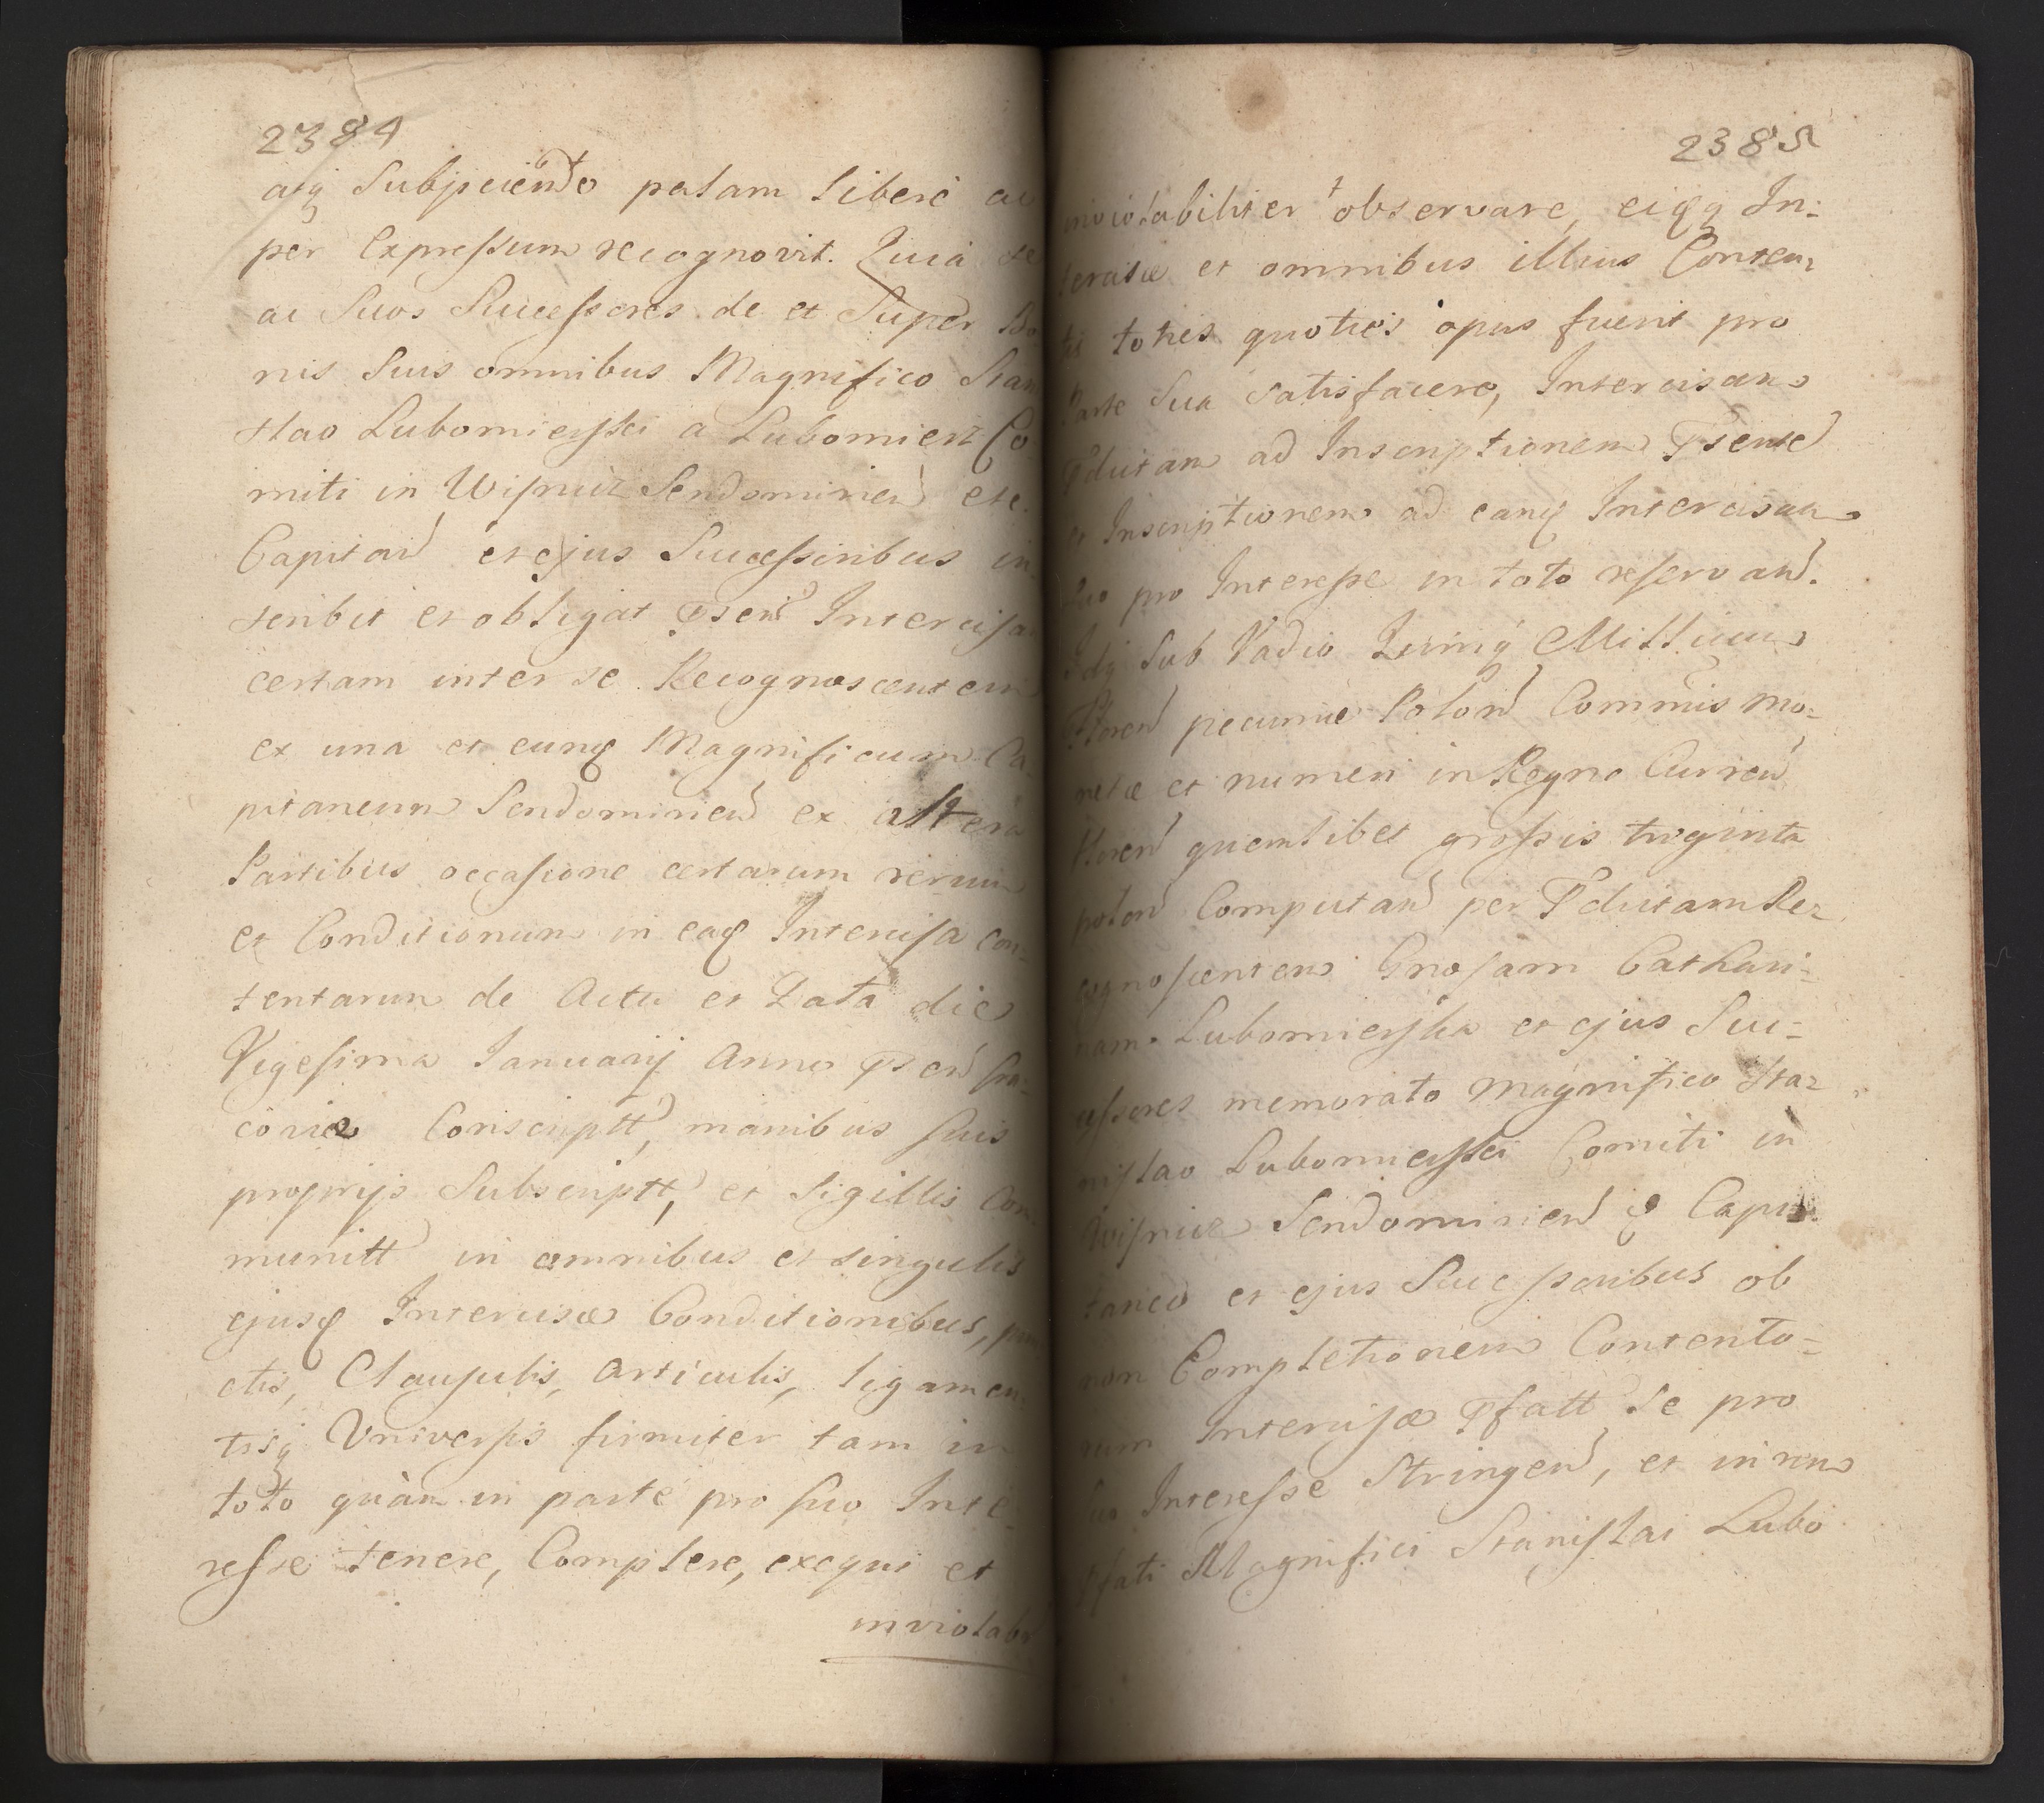 2384
atq Subjiciendo palam libere ac
per Expressum recognovit. Quia se
ac Suos Successores de et Super Bo-
nis Suis omnibus Magnifico Stani
slao Lubomierski a Lubomierz Co-
miti in Wisnicz Sendomirien etc.
Capitan et ejus Successoribus in-
scribit et obligat Psen Intercisam
certam inter se Recognoscentem
ex una et eunq Magnificum Ca-
pitaneum Sendomirien ex altera
Partibus occasione certarum rerum
et Conditionum in eaq Intercisa con-
tentarum de Actu et Data die
Vigesima Januarij Anno Psen
Conscriptt, manibus suis
proprijs Subscriptt, et Sigillis Com-
munitt in omnibus et singulis
ejusq Intercisæ Conditionibus, pun
ctis, Clausulis, Articulis, ligamen-
tisq Universis firmiter tam in
toto quàm in parte pro suo Inte-
resse tenere, Complere, exequi et
inviolabi
2385
inviolabiliter observare, eiqq In-
tercisæ et omnibus illius Conten-
tis toties quoties opus fuerit pro
Parte Sua Satisfacere, Intercisam
Pdictam ad Inscriptionem Psent
et Inscriptionem ad eanq Intercisam
Suo pro Interesse in toto reservand.
Idq Sub Vadio Quinq Millium
Floren pecuniæ Polon Commis mo-
netæ et numeri in Regno Curren
floren quemlibet grossis triginta
polon Computand per Pdictam Re-
cognoscentem Gnosam Cathari-
nam Lubomierska et ejus Suc-
cessores memorato Magnifico Sta-
nislao Lubomierski Comiti in
Wisnicz Sendomirien q Capi-
taneo et ejus Successoribus ob
non Completionem Contento-
rum Intercisæ Pfatt Se pro
suo Interesse Stringen, et in rem
Pfati Magnifici Stanislai Lubo